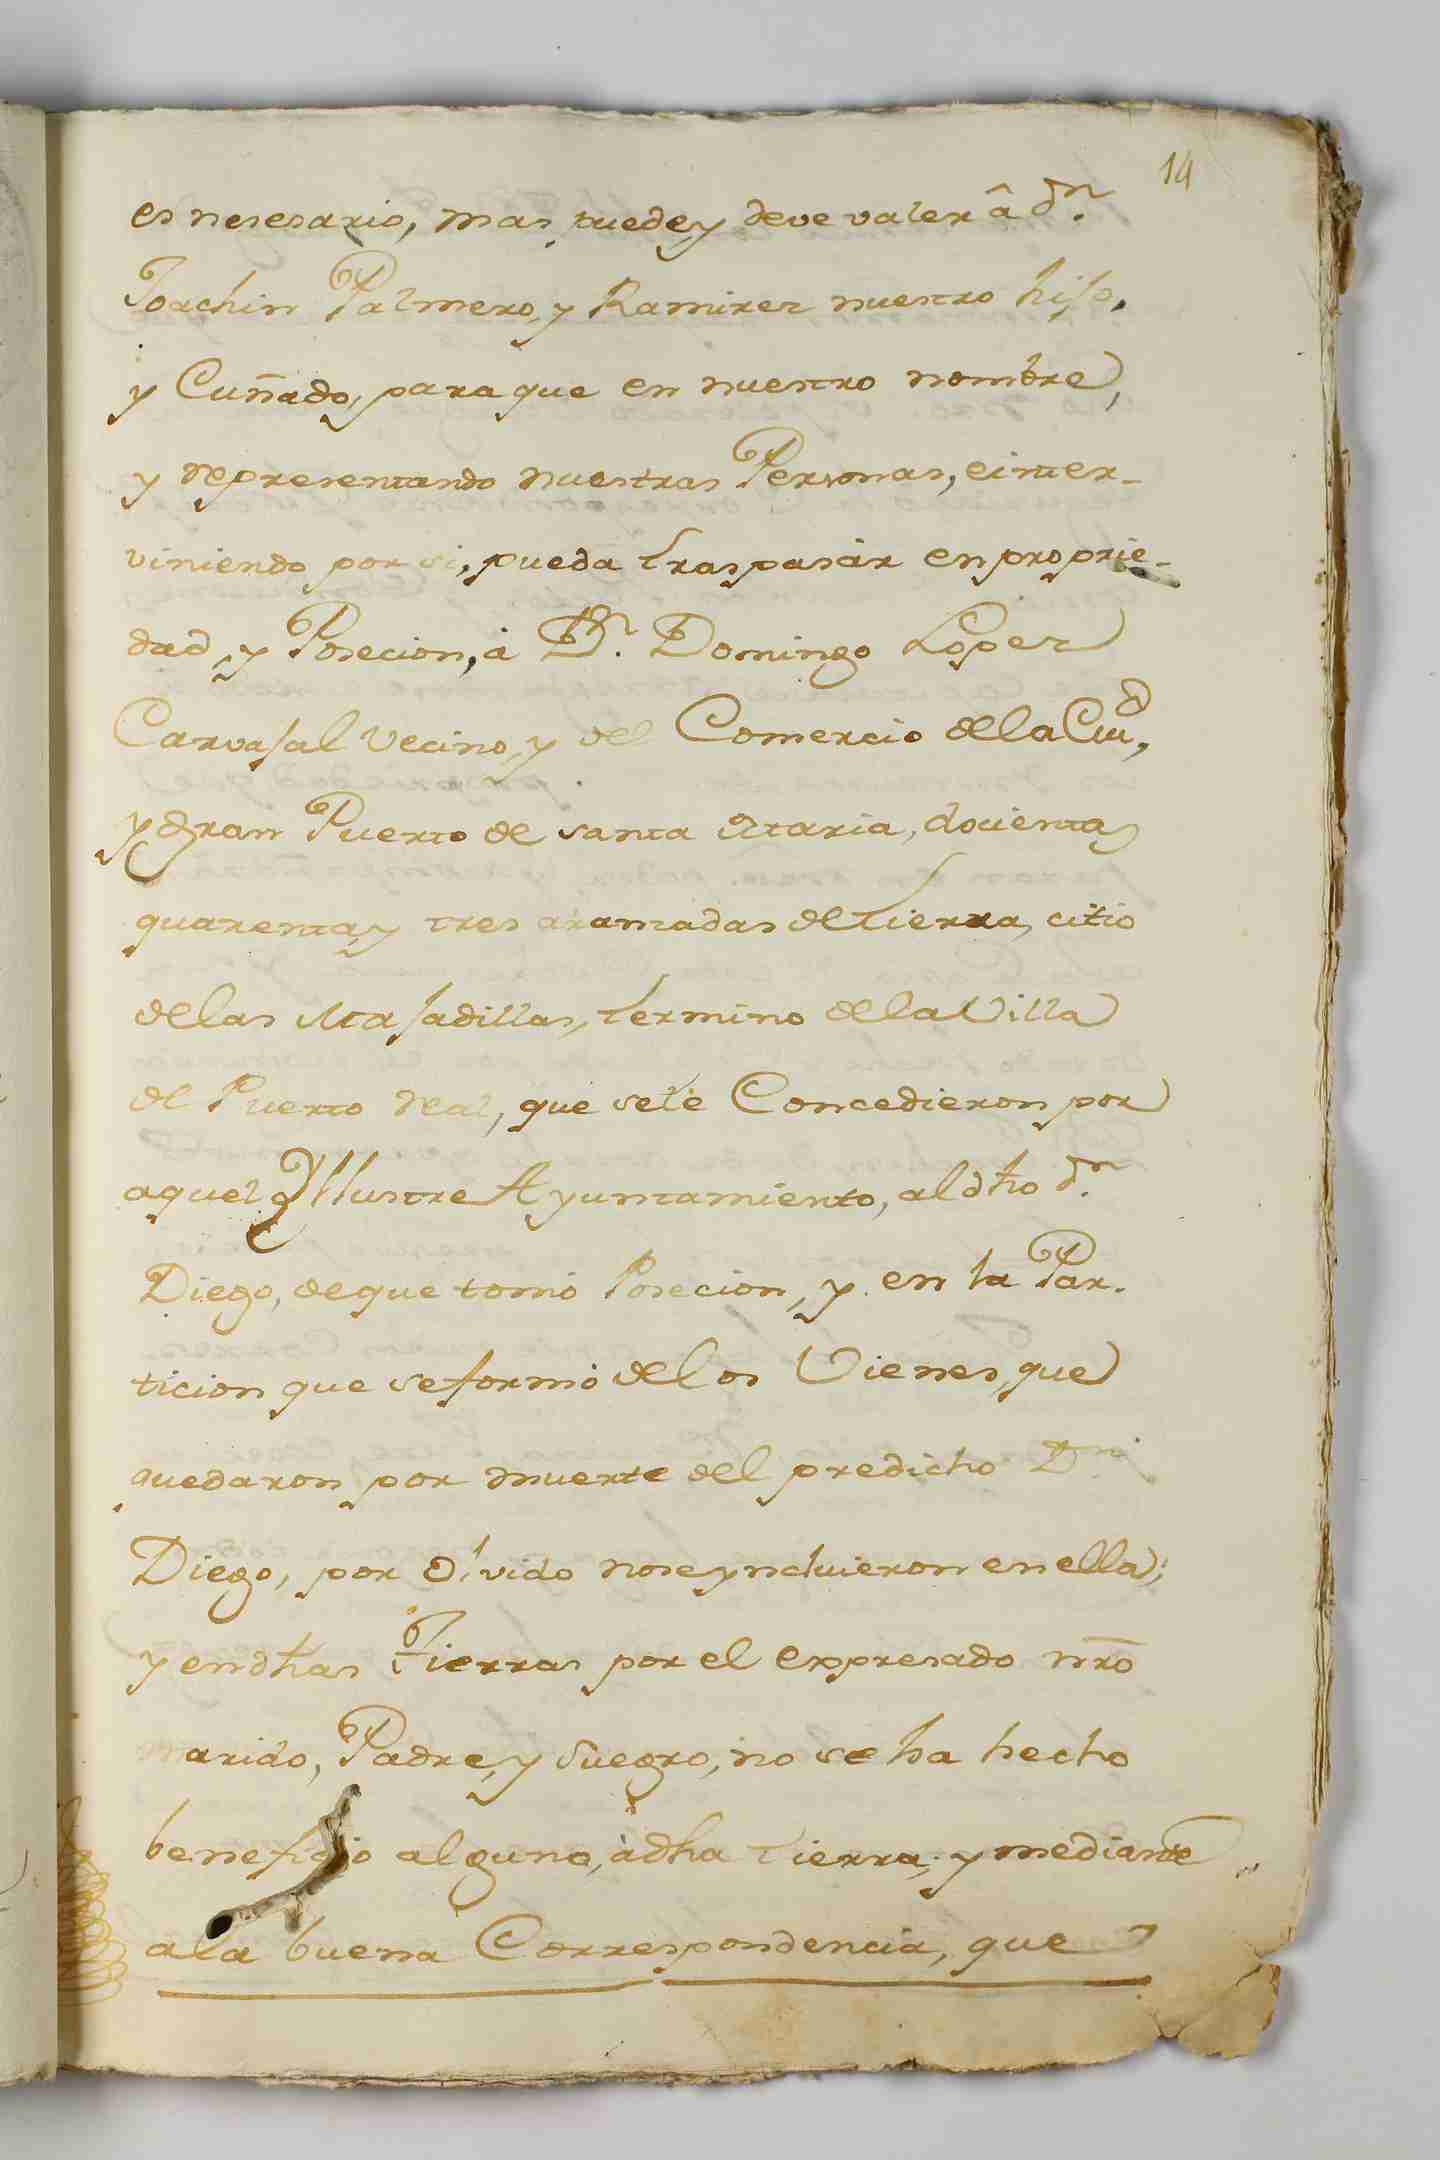 14
es nesesario, mas puede y deve valer â dn.
Joachin Palmero, y Ramirez nuestro hijo,
y Cuñado, para que en nuestro nombre,
y representando nuestras Personas, e inter-
viniendo por si, pueda traspasar en proprie-
dad, y Posecion, á Dn. Domingo Lopez
Carvajal Vecino, y del Comercio de la Ciud,
y gran Puerto de santa Maria, docientas
quarenta, y tres aranzadas de tierra, citio
de las Majadillas, termino de la Villa
de Puerto Real, que se le Concedieron por
aquel Yllustre Ayuntamiento, al dho dn.
Diego, de que tomó Posecion, y en la Par-
ticion que se formó de los Vienes, que
quedaron por muerte del predicho Dn.
Diego, por olvido no se yncluieron en ella;
y en dhas Tierras por el expresado nro
marido, Padre, y Suegro, no se ha hecho
beneficio alguno, à dha tierra, y mediante
a la buena Correspondencia, que